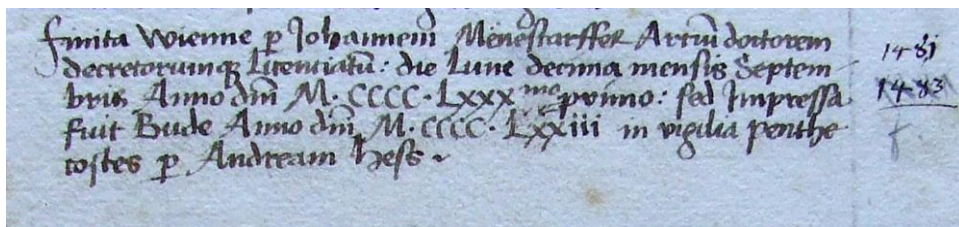 finita Wienne p Johannem Menestarffer Artiũ doctorem
decretorumq; Licenciatũ: die Lune decima mensis Septem
bris Anno dñi M. CCCC. Lxxx mo primo: sed Impressa
fuit Bude Anno dñi M. CCCC. Lxxiii in vigilia penthe
costes p Andream hess
1481
1483
f